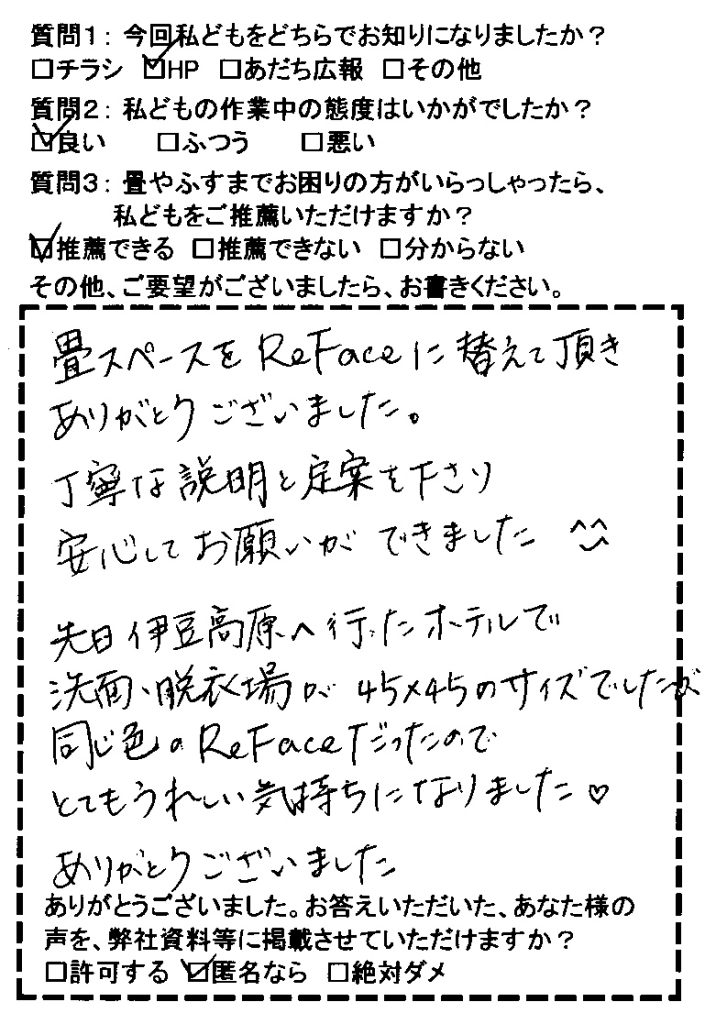 質問1：今回私どもをどちらでお知りになりましたか？
□チラシ ☑HP □あだち広報 □その他
質問2：私どもの作業中の態度はいかがでしたか？
☑良い □ふつう □悪い
質問3：畳やふすまでお困りの方がいらっしゃったら、
私どもをご推薦いただけますか？
☑推薦できる □推薦できない □分からない
その他、ご要望がございましたら、お書きください。
畳スペースをReFaceに替えて頂き
ありがとうございました。
丁寧な説明と定案を下さり
安心してお願いができました ^^
先日伊豆高原へ行ったホテルで
洗面、脱衣場が45×45のサイズでしたが
同じ色のReFaceだったので
とてもうれしい気持ちになりました♡
ありがとうございました
ありがとうございました。お答えいただいた、あなた様の
声を、弊社資料等に掲載させていただけますか？
□許可する ☑匿名なら □絶対ダメ